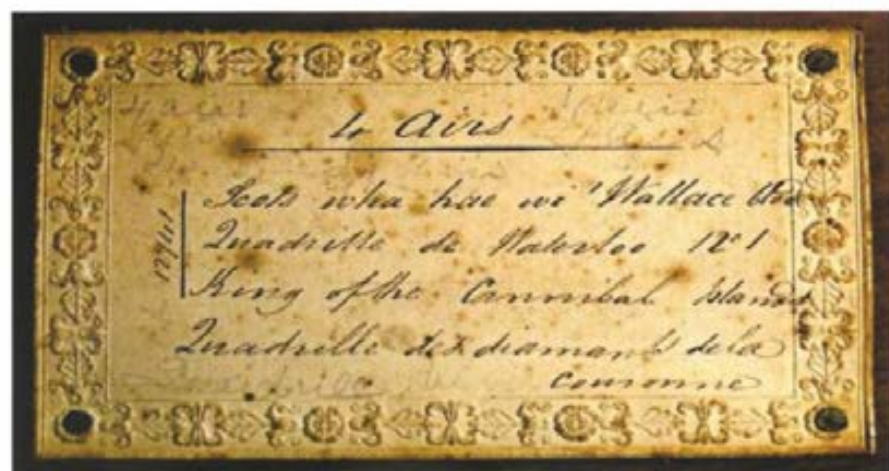 4 Airs
Scots wha hae wi' Wallace bled
Quadrille de Waterloo No 1
King of the Cannibal Islands
Quadrille des diamants de la
couronne